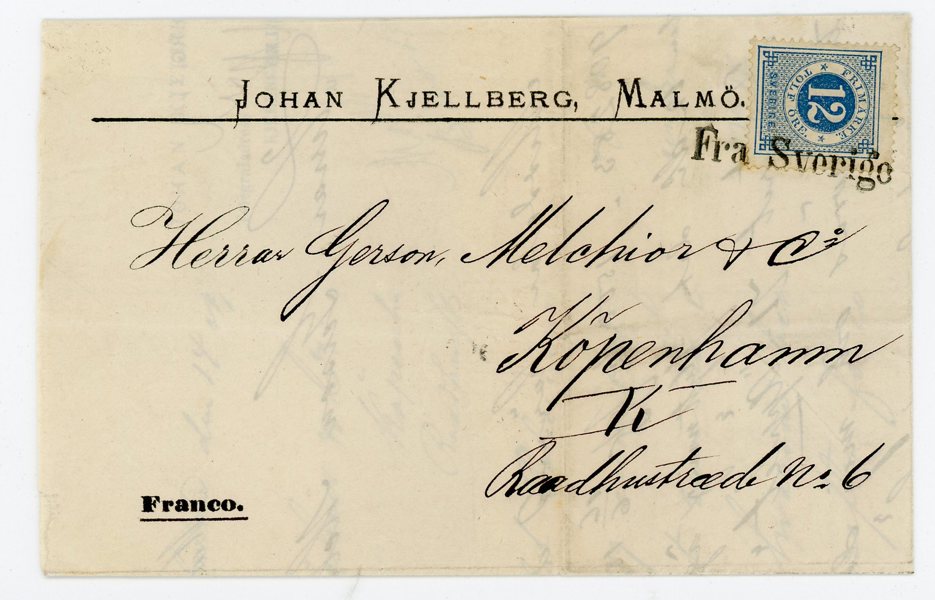 JOHAN KJELLBERG, MALMÖ.
FRIMÄRKE.
TOLF ÖRE.
12
SVERIGE
Fra Sverige
Herrar Gerson, Melchior & Co
Köpenhamn
K
Raadhustræde No 6
Franco.